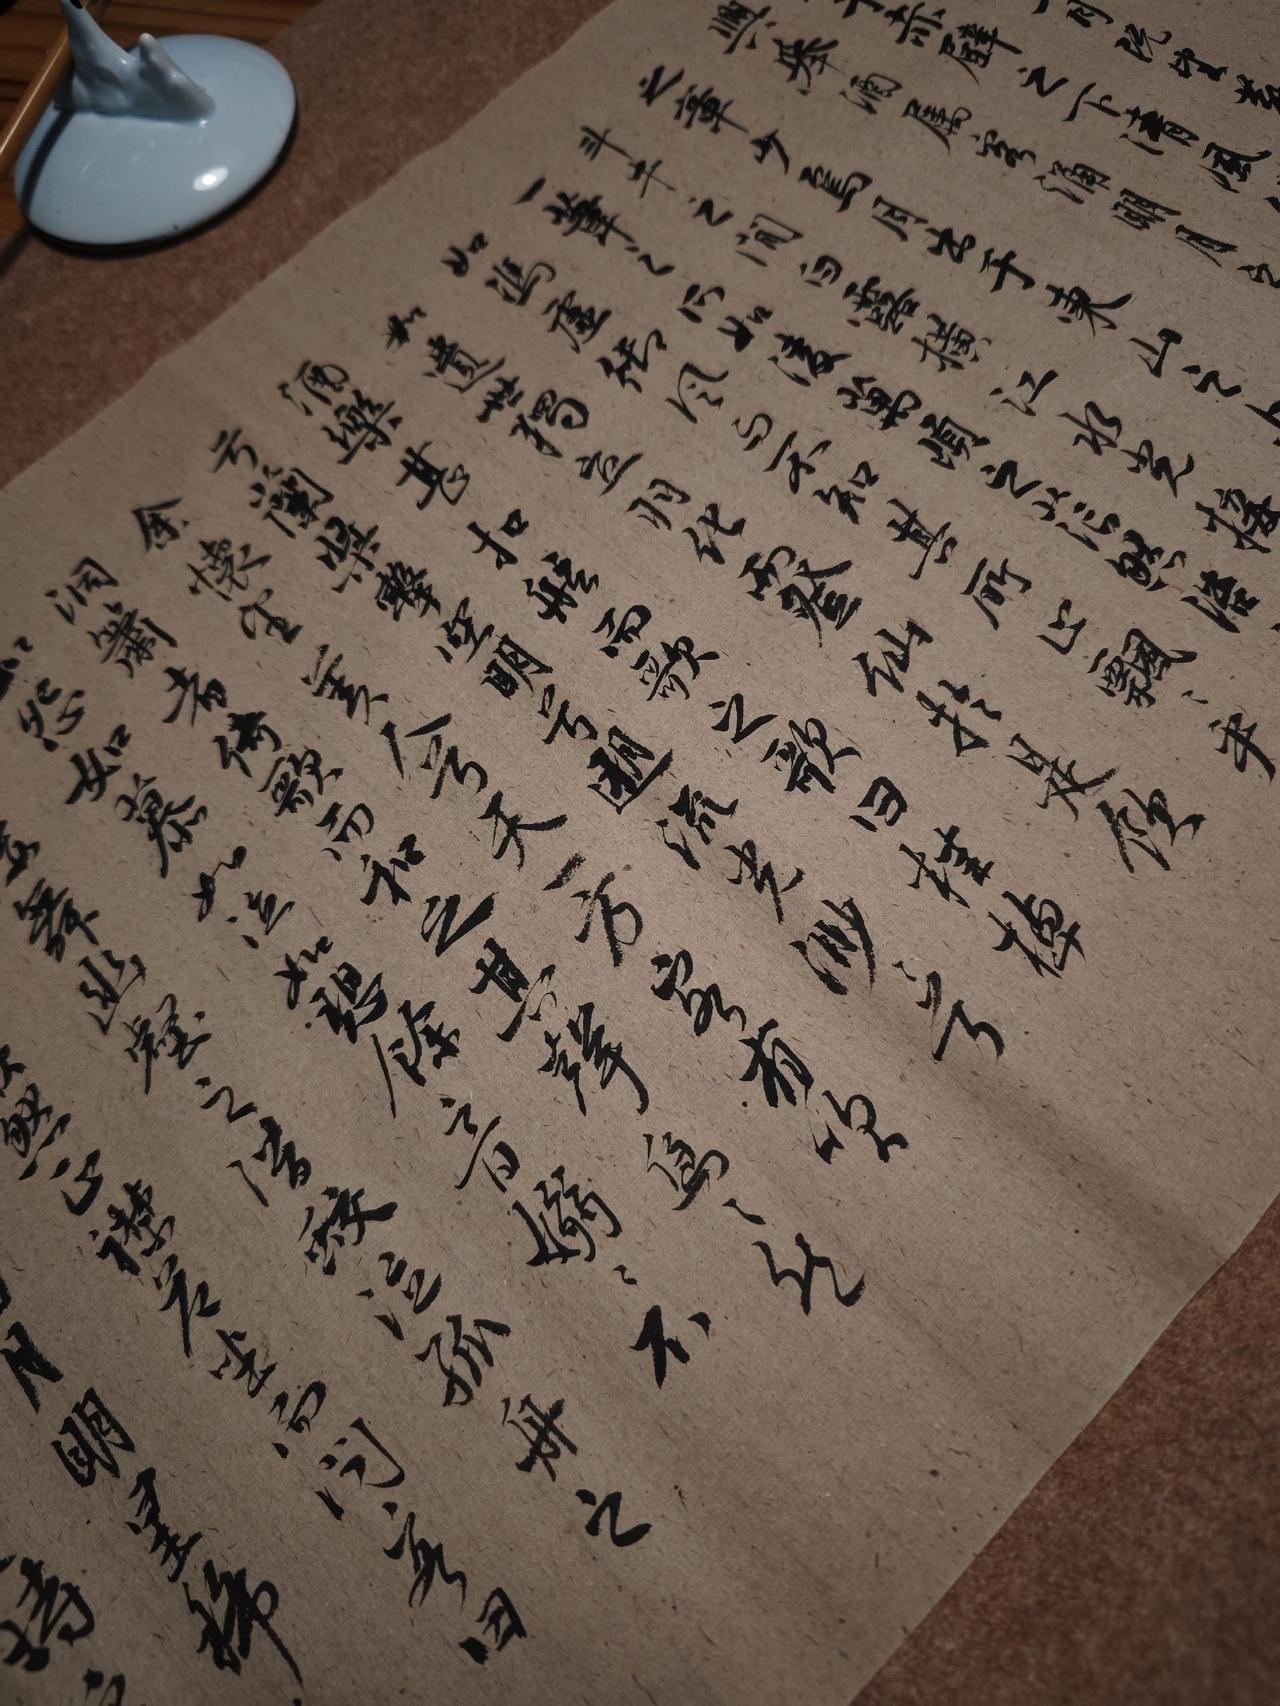 月既望蘇
于赤壁之下清風
興舉酒屬客誦明月之
之章少焉月出于東山之上
斗牛之間白露橫江水光接
一葦之所如凌萬頃之茫然浩
如馮虛御風而不知其所止飄〻乎
如遺世獨立羽化而登仙於是飲
酒樂甚扣舷而歌之歌曰桂棹
兮蘭槳擊空明兮遡流光渺〻兮
余懷望美人兮天一方客有吹
洞簫者倚歌而和之其聲烏〻然
如怨如慕如泣如愬餘音嫋〻不
舞幽壑之潛蛟泣孤舟之
然正襟危坐而問客曰
月明星稀